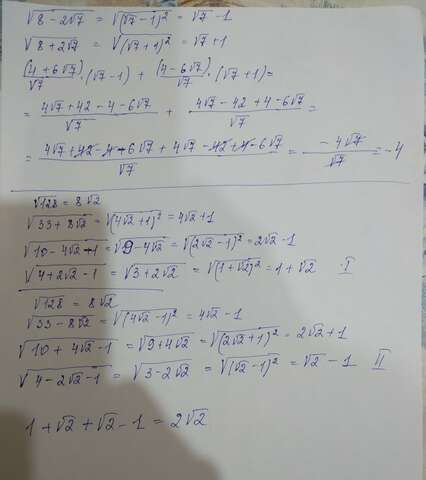 √(8-2√7) = √((√7-1)²) = √7-1
√(8+2√7) = √((√7+1)²) = √7+1
(4+6√7)/√7 · (√7-1) + (4-6√7)/√7 · (√7+1)=
= (4√7+42-4-6√7)/√7 + (4√7-42+4-6√7)/√7 =
= (4√7+42-4-6√7+4√7-42+4-6√7)/√7 = (-4√7)/√7 = -4
√128 = 8√2
√(33+8√2) = √((4√2+1)²) = 4√2+1
√(10-4√2-1) = √(9-4√2) = √((2√2-1)²) = 2√2-1
√(4+2√2-1) = √(3+2√2) = √((1+√2)²) = 1+√2 I
√128 = 8√2
√(33-8√2) = √((4√2-1)²) = 4√2-1
√(10+4√2-1) = √(9+4√2) = √((2√2+1)²) = 2√2+1
√(4-2√2-1) = √(3-2√2) = √((√2-1)²) = √2-1 II
1+√2+√2-1 = 2√2